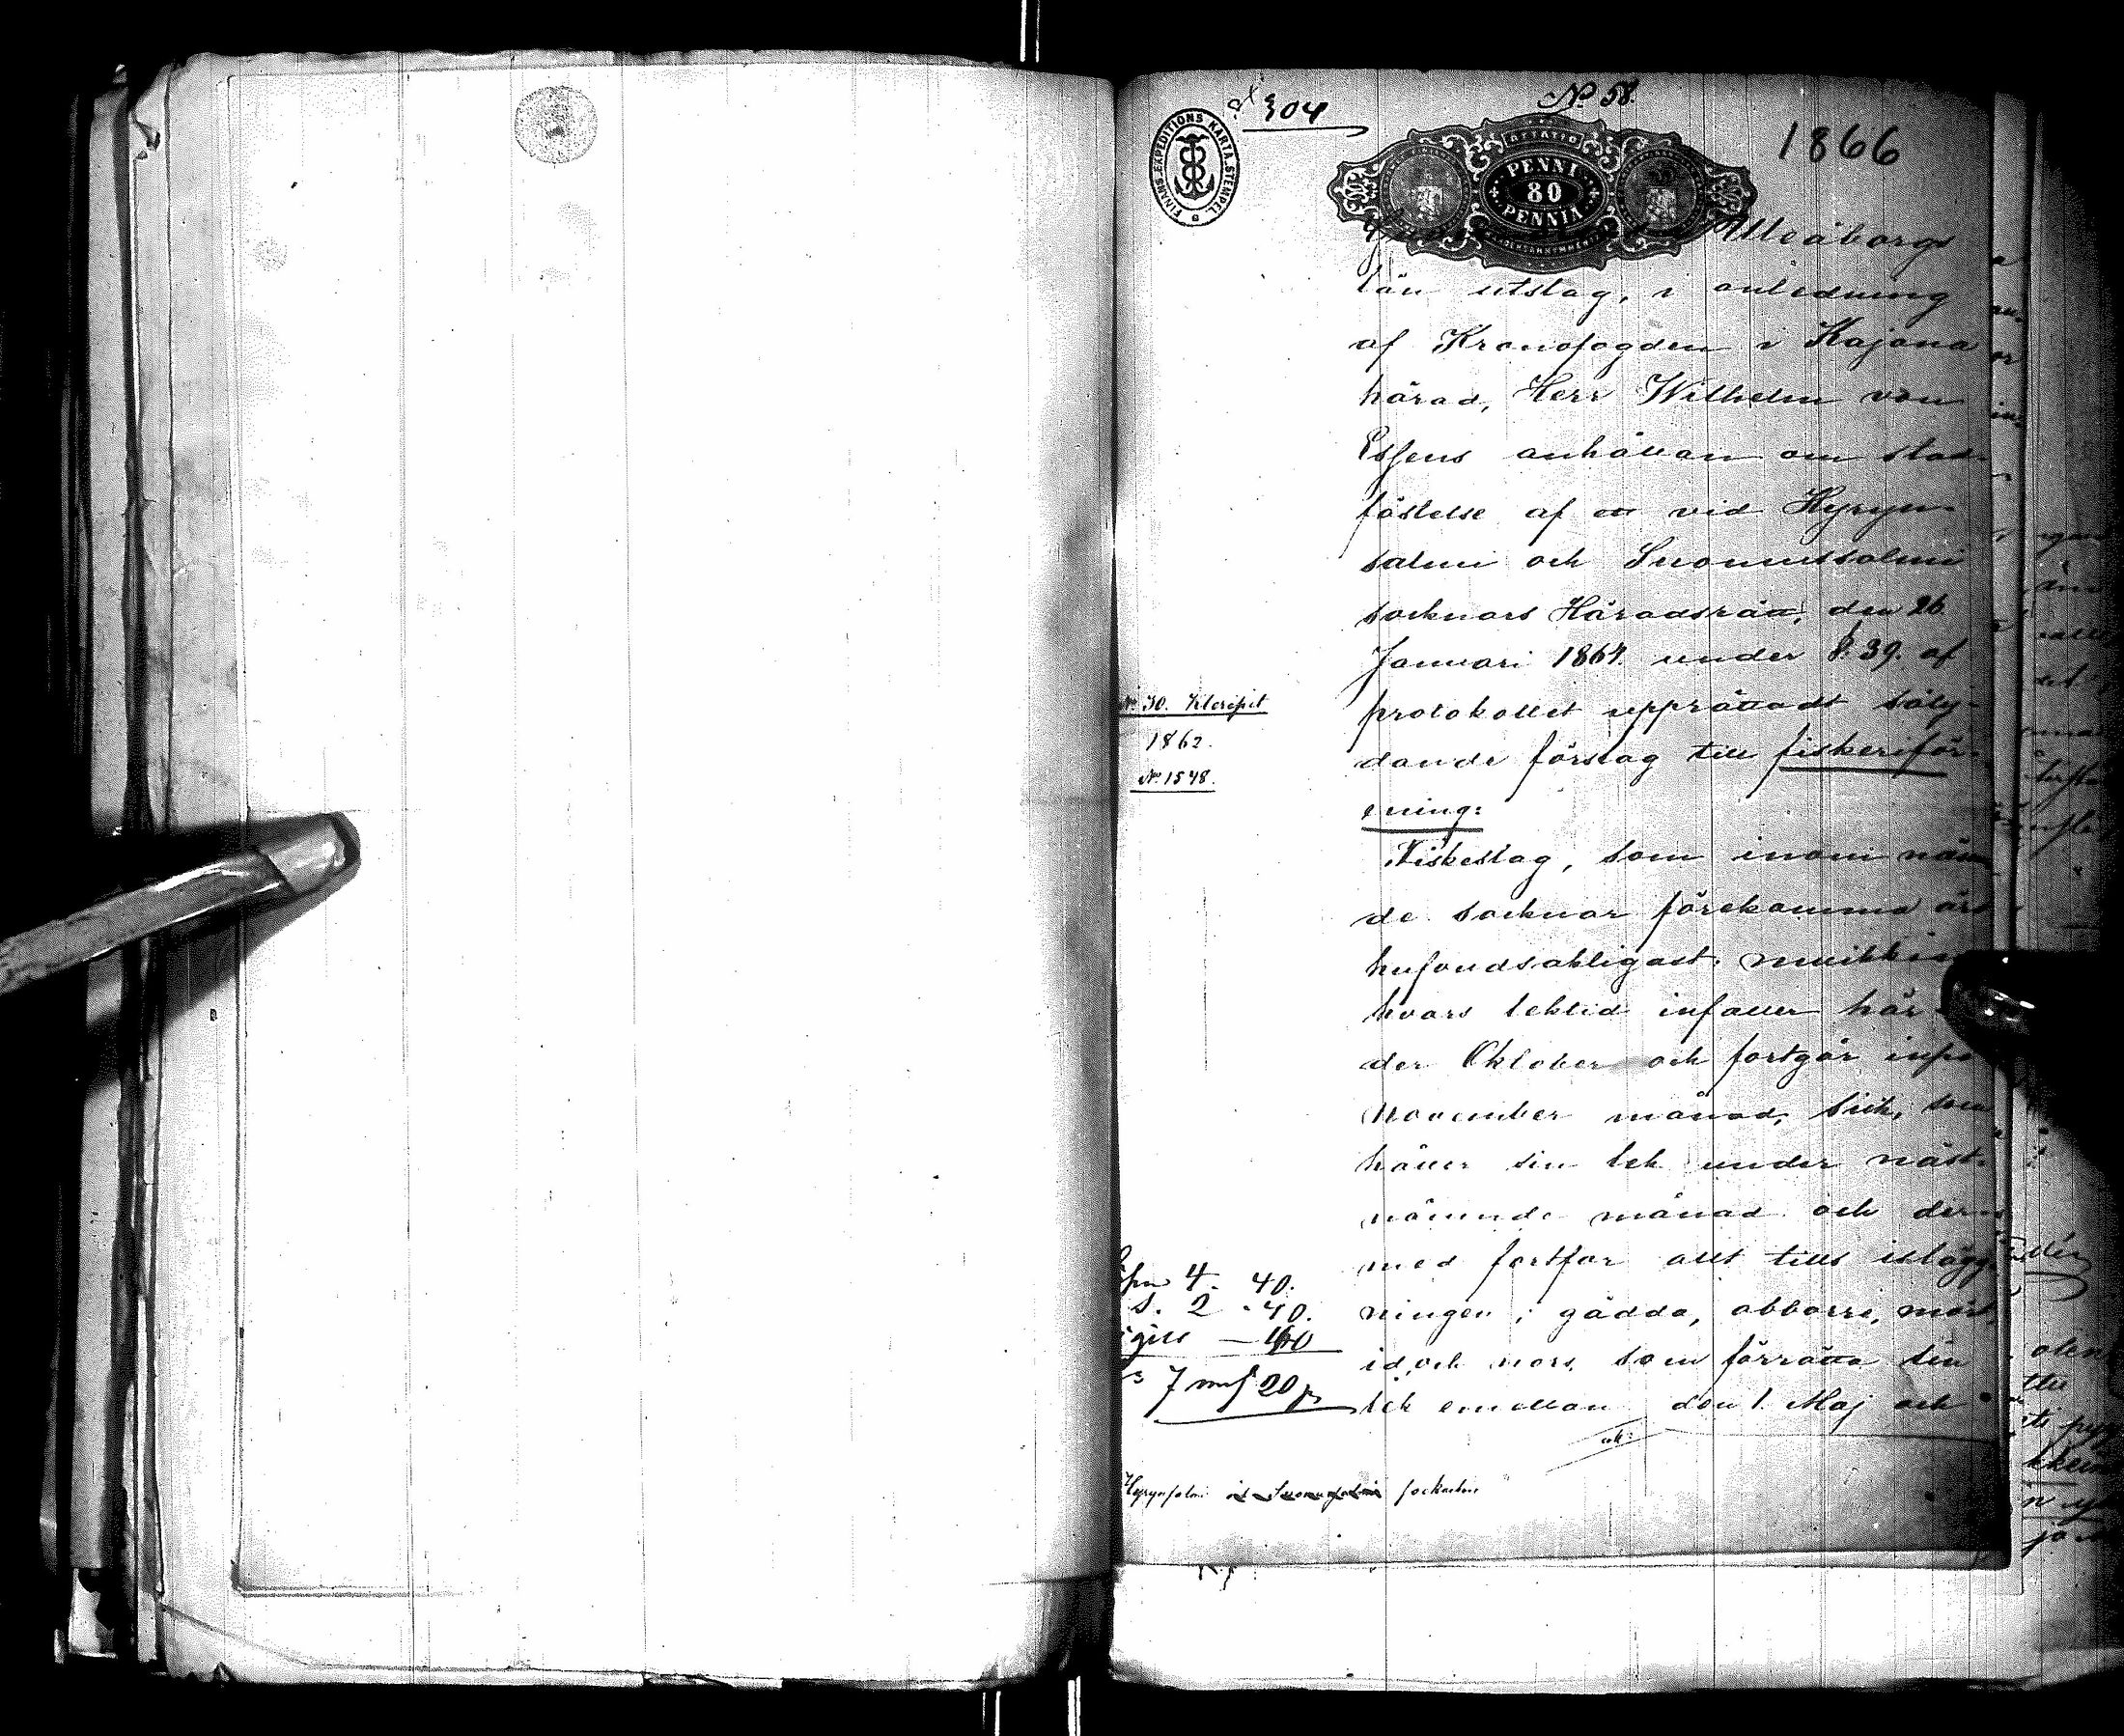 № 58.
304
1866
FINANS.EXPEDITIONS KARTA.STEMPEL.
PENNI
80
PENNIÄ
Uleåborgs
län utslag, i anledning
af Kronofogden i Kajana
härad, Herr Wilhelm von
Essens anhållan om stad-
fästelse af ett vid Hyryn-
salmi och Suomussalmi
socknars Häradsrätt, den 26
Januari 1864. under §. 39. af
protokollet upprättadt sålj-
dande förslag till fiskeriför-
ening:
Fiskeslag, som inom näm
de socknar förekomma äro
hufvudsakligast: muikka
hvars lektid infaller här
der Oktober och fortgår inpå
November månad, sik, som
håller sin lek under näst-
nämnde månad och der
med fortfar allt tills islägg-
ningen; gädda, abborre, mört,
id och nors, som förrätta sin
lek emellan den 1. Maj och
och:
№ 30. Utersp:t
1862.
№ 1548.
4. 40.
S. 2 . 40.
40
7 mf 20 p
Hyrynsalmi socknar